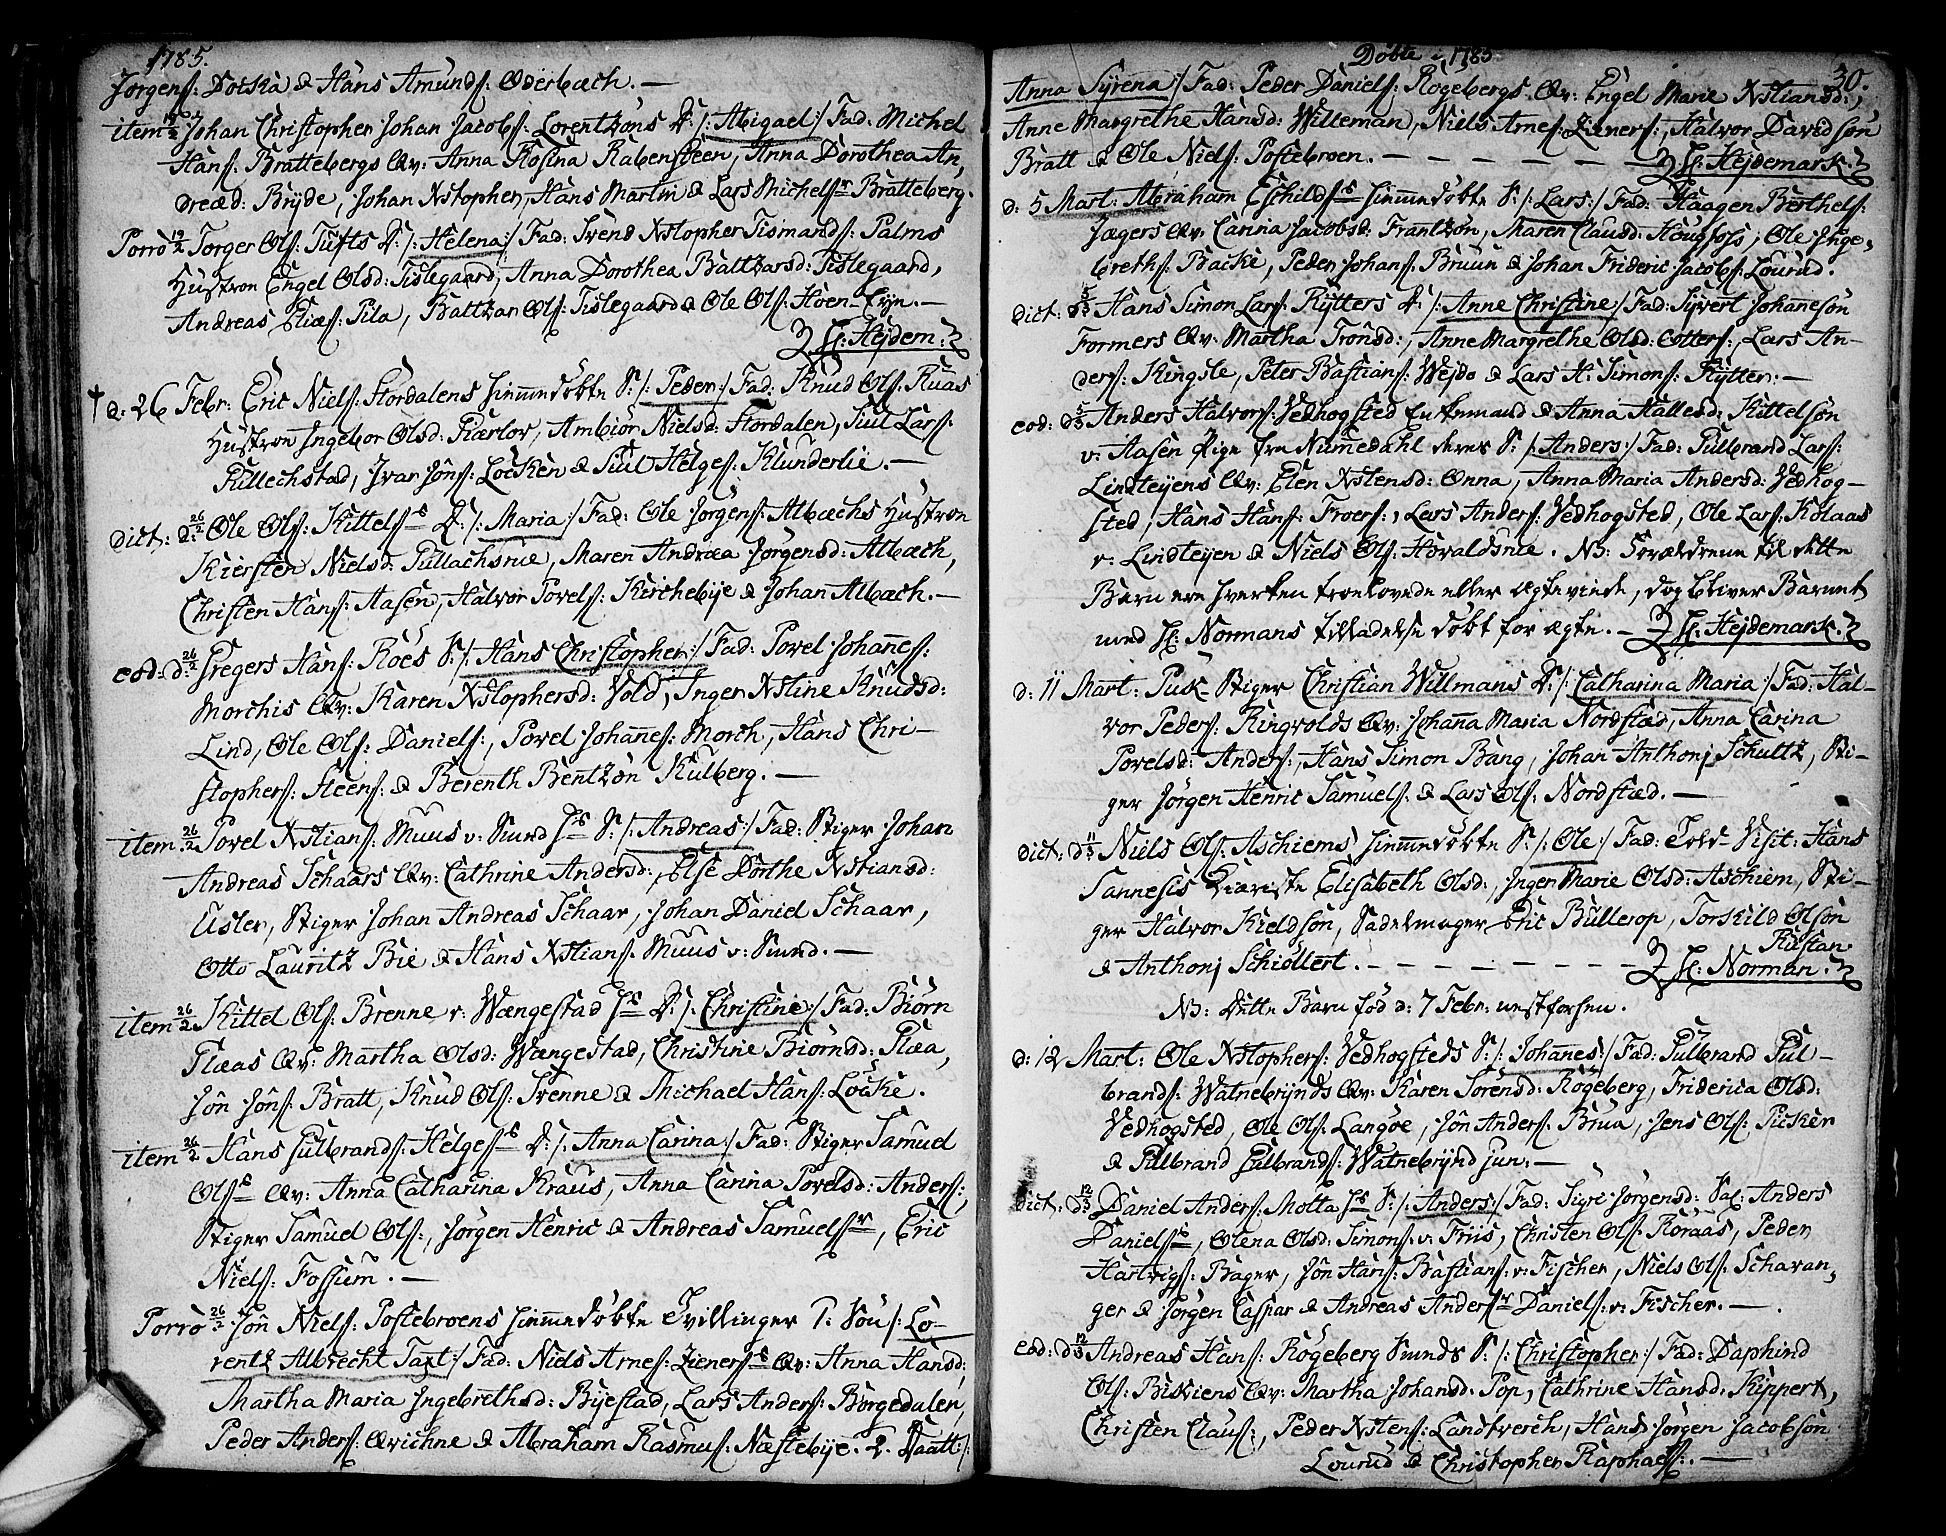 1785.
Jörgens: Dotska & Hans Amunds: Oderbæch. —
item 19/2 Johan Christopher Johan Jacobs: Lorentzöns D: /: Abigael :/ Fad: Michel
Hans: Brattebergs Qv: Anna Rosina Rabensteen, Anna Dorothea An-
dreæd: Bryde, Johan Xstopher, Hans Martin & Lars Michelsr Bratteberg.
Porrò 19/2 Torger Ols: Tufts D: /: Helena :/ Fad: Svend Xstopher Tismands: Palms
Hustroe Engel Olsd: Tislegaard, Anna Dorothea Baltzarsd: Tislegaard,
Andreas Eliæs: Pila, Baltzar Ols: Tislegaard & Ole Ols: Hoen-Eyn. —
H: Hejdem:
† d: 26 Febr: Eric Niels: Stordalens hiemmedöbte S: /: Peder :/ Fad: Knud Ols: Ruas
Hustroe Ingebor Olsd: Kiærlov, Ambiör Nielsd: Stordalen, Siul Lars:
Gullechstad, Ivar Jöns: Löcken & Siul Helges: Klunderlie. —
Dict: d: 26/2 Ole Ols: Kittelss D: /: Maria :/ Fad: Ole Jörgens: Albæchs Hustroe
Kiersten Nielsd: Gullachsrue, Maren Andræa Jörgensd: Albæch,
Christen Hans: Aasen, Halvor Povels: Kirchebye & Johan Albæch. —
eod: d: 26/2 Gregers Hans: Röes S: /: Hans Christopher :/ Fad: Povel Johañes:
Morchis Qv: Karen Xstophersd: Vold, Inger Xstine Knudsd:
Lind, Ole Ols: Daniels:, Povel Johañes: Morch, Hans Chri-
stophers: Steens: & Berenth Bentzön Kulberg. —
item: 26/2 Povel Xstians: Muus v: Sund hs S: /: Andreas :/ Fad: Stiger Johan
Andreas Schaars Qv: Cathrine Andersd:, Else Dorthe Xstiansd:
Usler, Stiger Johan Andreas Schaar, Johan Daniel Schaar,
Otto Lauritz Bie & Hans Xstians: Muus v: Sund. —
item 26/2 Kittel Ols: Brenne v: Wængestad hs D: /: Christine :/ Fad: Biörn
Plæas Qv: Martha Olsd: Wængestad, Christine Biörnsd: Plæa,
Jön Jöns: Bratt, Knud Ols: Svenne & Michael Hans: Löcke.
item 26/2 Hans Gulbrands: Helgess D: /: Anna Carina :/ Fad: Stiger Samuel
Olss Qv: Anna Catharina Kraus, Anna Carina Povelsd: Anders:,
Stiger Samuel Ols:, Jörgen Henric & Andreas Samuelsr, Eric
Niels: Fossum. —
Porrò 26/2 Jön Niels: Postebroens hiemmedöbte Tvillinger 1. Sön /: Lo-
rentz Albrecht Taxt :/ Fad: Niels Arnes: Zienerss Qv: Anna Hansd:,
Martha Maria Ingebrethsd: Byestad, Lars Anders: Börgedalen,
Peder Anders: Qvichne & Abraham Rasmus: Næstebye. 2. Daatt:
Döbte i 1785
30.
Anna Syrena :/ Fad: Peder Daniels: Rögebergs Qv: Engel Marie Xstiansd:,
Anne Margrethe Hansd: Willeman, Niels Arnes: Zieners:, Halvor Davidsön
Bratt & Ole Niels: Postebroen. — H: Hejdemark.
d: 5 Mart: Abraham Eschildss hiemmedöbte S: /: Lars :/ Fad: Haagen Berthels:
Jægers Qv: Carina Jacobsd: Frantzön, Maren Clausd: Hougfoss, Ole Inge-
breths: Backe, Peder Johans: Bruun & Johan Frideric Jacobs: Lourud.
Dict: d 5/3 Hans Simon Lars: Rytters D: /: Anne Christine :/ Fad: Syvert Johañesön
Formers Qv: Martha Tronsd:, Anne Margrethe Olsd: Otters:, Lars An-
ders: Kingsle, Peter Bastians: Wejdo & Lars H: Simons: Rytter: —
eod: d 5/3 Anders Halvors: Vedhogsted Enkemand & Anna Hallesd: Kittelsön
v: Aasen Pige fra Numedahl deres S: /: Anders :/ Fad: Gulbrand Lars:
Lindteyens Qv: Elen Xstensd: Onna, Anna Maria Andersd: Vedhog-
sted, Hans Hans: Froers:, Lars Anders: Vedhogsted, Ole Lars: Kolaas
v: Lindteyen & Niels Ols: Hovaldsrue. NB: Forældrene til dette
Barn ere hverken troelovede eller Egteviede, dog bliver Barnet
med H: Normans tilladelse döbt for ægte. — H: Hejdemark.
d: 11 Mart: Puk-Stiger Christian Willmans D: /: Catharina Maria :/ Fad: Hal-
vor Peders: Ringvolds Qv: Johaña Maria Nordstæd, Anna Carina
Povelsd: Anders:, Hans Simon Bang, Johan Anthonj Schultz, Sti-
ger Jörgen Henric Samuels: & Lars Ols: Nordstæd. —
Dict: d 11/3 Niels Ols: Aschiems hiemmedöbte S: /: Ole :/ Fad: Told-Visit: Hans
Sannesis Kiæreste Elisabeth Olsd:, Inger Marie Olsd: Aschiem, Sti-
ger Halvor Kieldsön, Sadelmager Eric Bullerop, Torskild Olsön
Rustan
& Anthonj Schiöllert. — H: Norman.
NB: Dette Barn föd d: 7 Febr: nestforhen.
d: 12 Mart: Ole Xstophers: Vedhogsteds S: /: Johannes :/ Fad: Gulbrand Gul-
brands: Watnebrynds Qv: Karen Sörensd: Rögeberg, Friderica Olsd:
Vedhogsted, Ole Ols: Langöe, Jön Anders: Brua, Jens Ols: Sicker
& Gulbrand Gulbrands: Watnebrynd jun. —
Dict: d 12/3 Daniel Anders: Motta hs S: /: Anders :/ Fad: Siyri Jörgensd: Sal: Anders
Danielss, Olena Olsd: Simons: v: Friis, Christen Ols: Floraas, Peder
Hartvigs: Bager, Jön Hans: Bastians: v: Fischer, Niels Ols: Schavan-
ger & Jörgen Caspar & Andreas Andersr Daniels: v: Fischer. —
eod: d 12/3 Andreas Hans: Rögeberg Sunds S: /: Christopher :/ Fad: Daphind
Ols: Biskiens Qv: Martha Johansd: Pop, Cathrine Hansd: Kippert,
Christen Claus:, Peder Xstens: Landtverch, Hans Jörgen Jacobsön
Lourud & Christopher Raphaels:. —